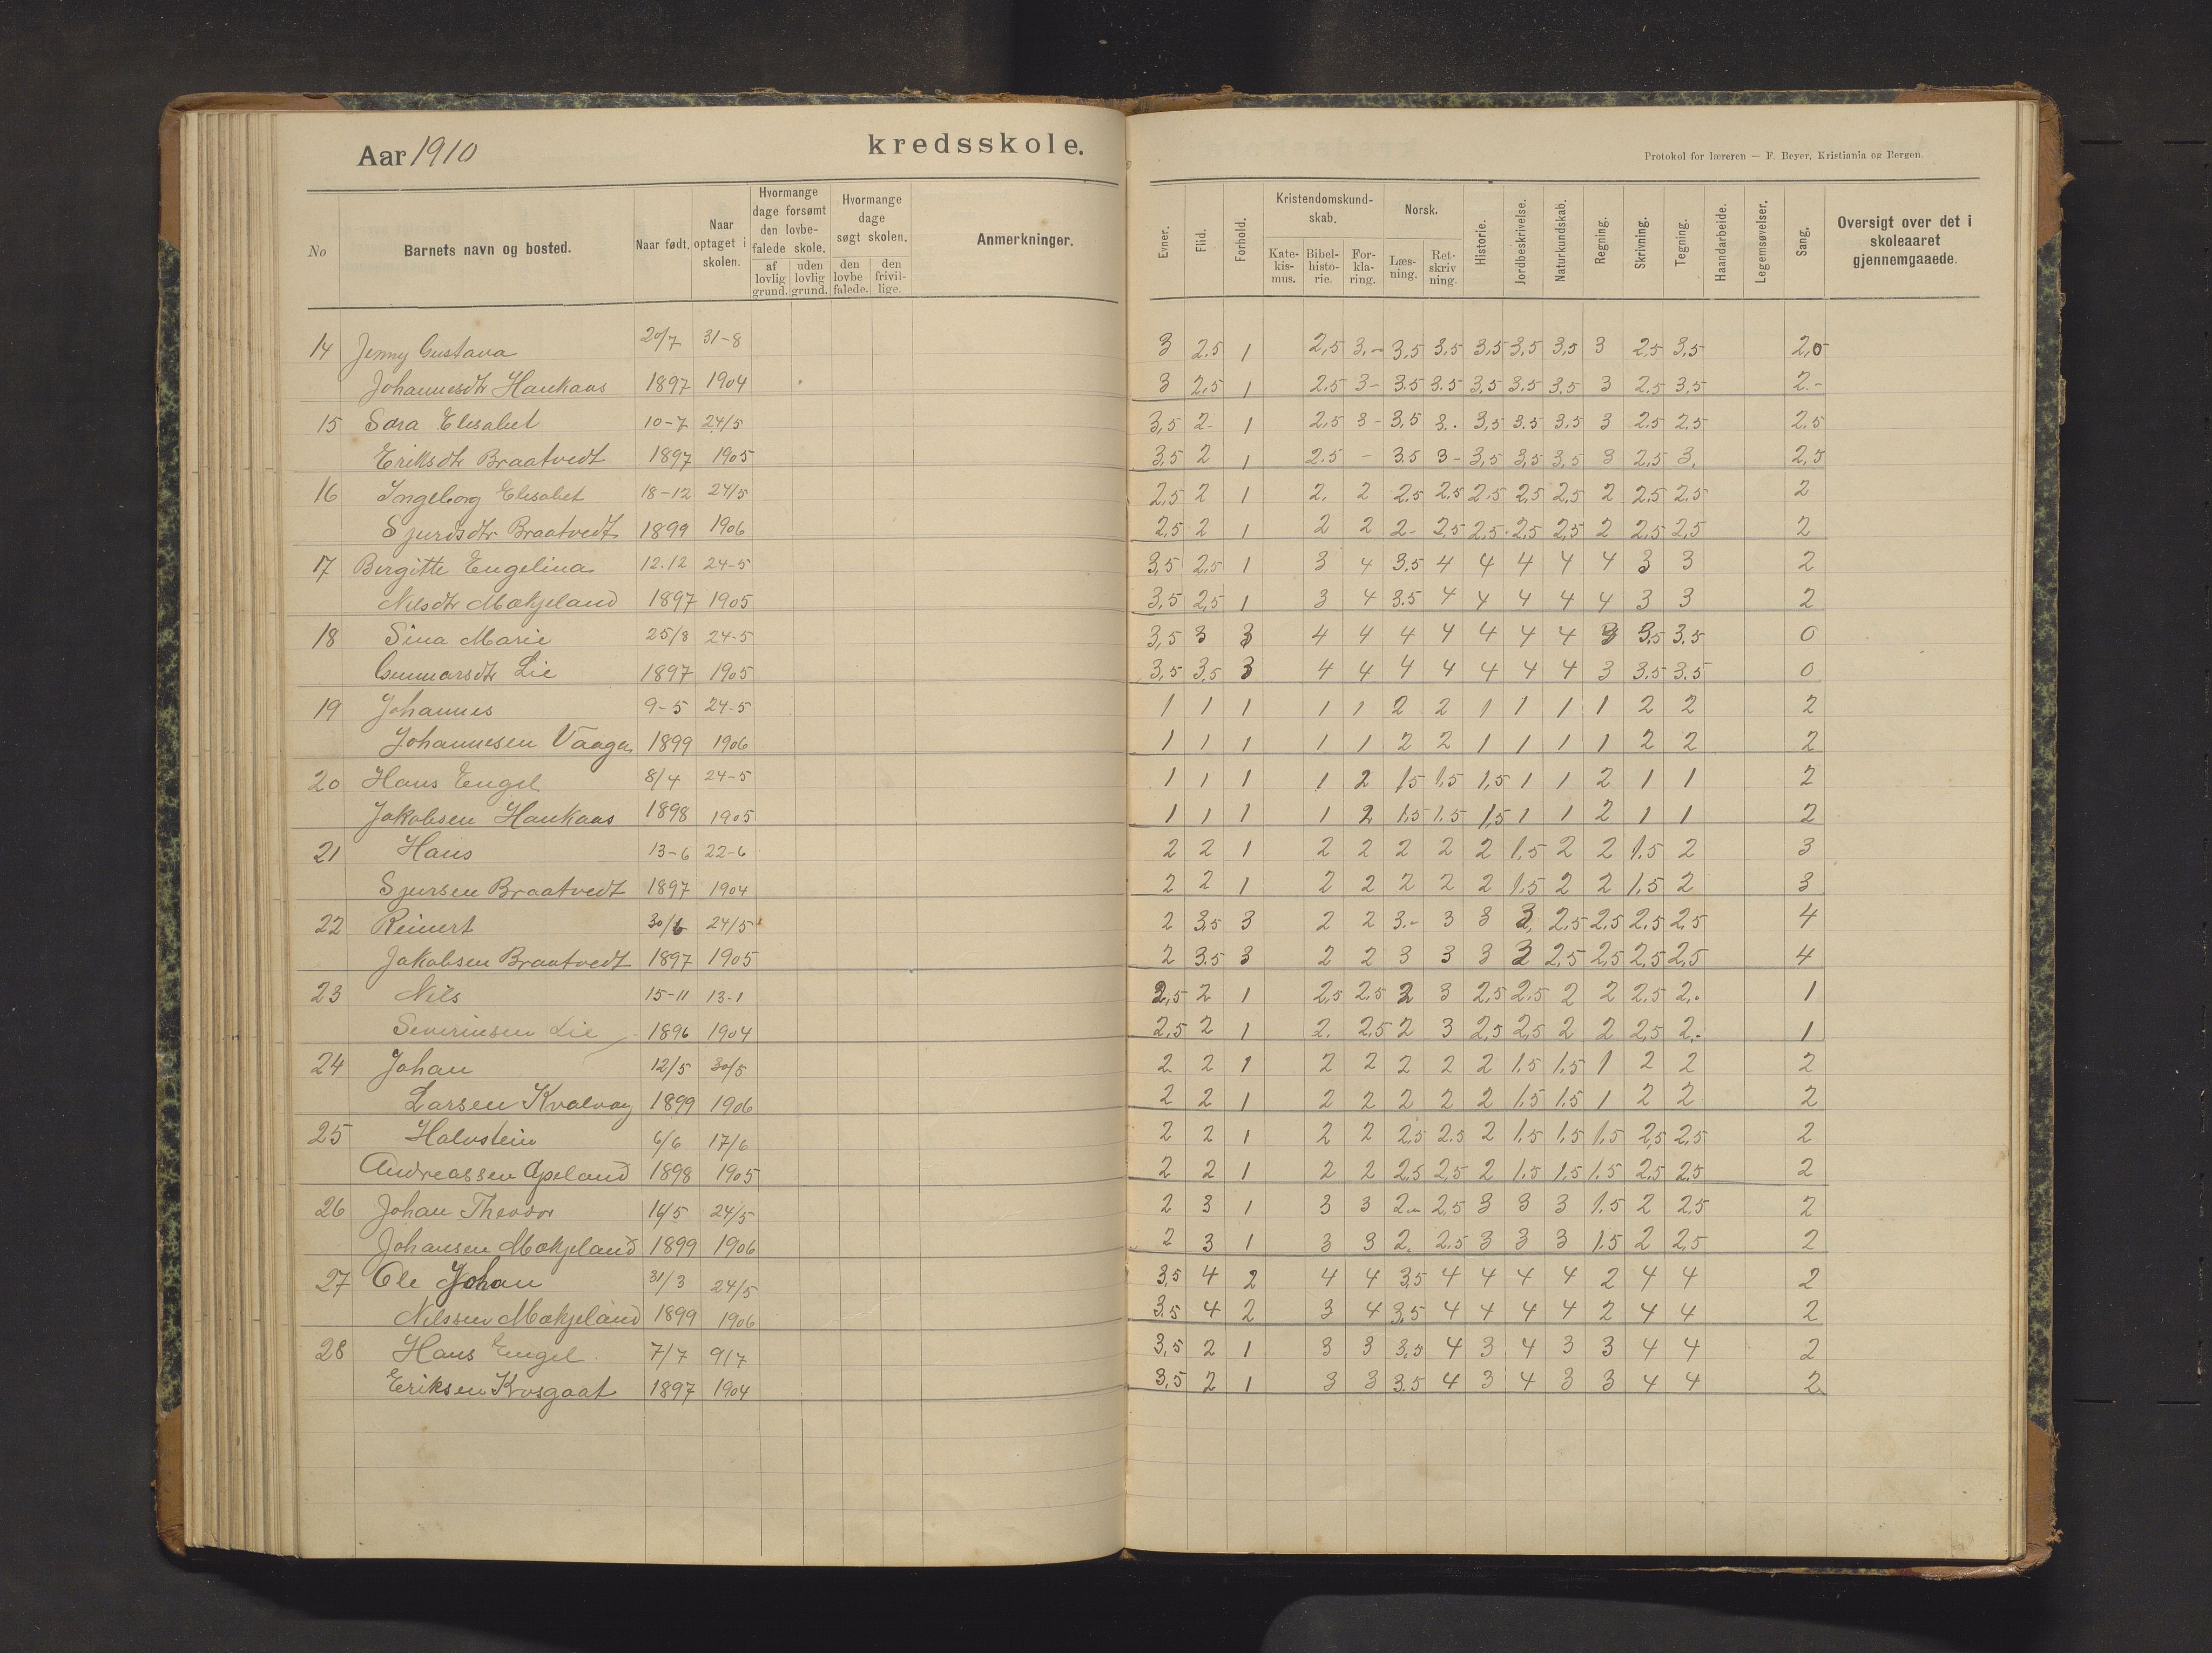 Aar 1910
kredsskole.
Protokol for læreren — F. Beyer, Kristiania og Bergen.
No
Barnets navn og bosted.
Naar født.
Naar optaget i skolen.
Hvormange dage forsømt den lovbefalede skole.
af lovlig grund.
uden lovlig grund.
Hvormange dage søgt skolen.
den lovbefalede.
den frivillige.
Anmerkninger.
Evner.
Flid.
Forhold.
Kristendomskundskab.
Katekismus.
Bibelhistorie.
Forklaring.
Norsk.
Læsning.
Retskrivning.
Historie.
Jordbeskrivelse.
Naturkundskab.
Regning.
Skrivning.
Tegning.
Haandarbeide.
Legemsøvelser.
Sang.
Oversigt over det i skoleaaret gjennemgaaede.
14 Jenny Gustava 20/7 31-8 3 2.5 1 2,5 3.- 3,5 3,5 3,5 3,5 3,5 3 2,5 3,5 2,0
Johannesdtr Haukaas 1897 1904 3 2,5 1 2.5 3- 3.5 3.5 3,5 3.5 3.5 3 2.5 3,5 2.-
15 Sara Elisabet 10-7 24/5 3,5 2- 1 2,5 3- 3,5 3. 3,5 3.5 3.5 3 2.5 2.5 2.5
Eriksdtr Braatvedt 1897 1905 3,5 2 1 2.5 - 3.5 3- 3,5 3,5 3,5 3 2,5 3. 2,5
16 Ingeborg Elisabet 18-12 24/5 2,5 2 1 2. 2 2.5 2,5 2.5 2,5 2,5 2 2,5 2,5 2
Sjursdtr Braatvedt 1899 1906 2,5 2 1 2 2 2- 2,5 2,5 2,5 2,5 2 2,5 2,5 2
17 Birgitte Engelina 12.12 24-5 3,5 2,5 1 3 4 3.5 4 4 4 4 4 3 3 2
Nilsdtr Mækjeland 1897 1905 3,5 2,5 1 3 4 3.5 4 4 4 4 4 3 3 2
18 Sina Marie 25/8 24-5 3,5 3 3 4 4 4 4 4 4 4 3 3.5 3.5 0
Gunnarsdtr Lie 1897 1905 3,5 3,5 3 4 4 4 4 4 4 4 3 3.5 3.5 0
19 Johannes 9-5 24-5 1 1 1 1 1 2 2 1 1 1 1 2 2 2
Johannesen Vaagen 1899 1906 1 1 1 1 1 2 2 1 1 1 1 2 2 2
20 Hans Engel 8/4 24-5 1 1 1 1 2 1,5 1,5 1,5 1 1 2 1 1 2
Jakobsen Haukaas 1898 1905 1 1 1 1 2 1.5 1.5 1,5 1 1 2 1 1 2
21 Hans 13-6 22-6 2 2 1 2 2 2 2 2 1,5 2 2 1.5 2 3
Sjursen Braatvedt 1897 1904 2 2 1 2 2 2 2 2 1.5 2 2 1,5 2 3
22 Reinert 30/6 24/5 2 3,5 3 2 2 3.- 3 3 3, 2,5 2,5 2.5 2,5 4
Jakobsen Braatvedt 1897 1905 2 3.5 3 2 2 3 3 3 3 2,5 2,5 2,5 2,5 4
23 Nils 15-11 13-1 2,5 2 1 2,5 2,5 2 3 2,5 2,5 2 2 2,5 2. 1
Severinsen Lie 1896 1904 2,5 2 1 2. 2,5 2 3 2,5 2,5 2 2 2,5 2. 1
24 Johan 12/5 30/5 2 2 1 2 2 2 2 2 1.5 1.5 1 2 2 2
Larsen Kvalvaag 1899 1906 2 2 1 2 2 2 2 2 1.5 1.5 1 2 2 2
25 Halvstein 6/6 17/6 2 2 1 2 2 2.5 2.5 2 1.5 1.5 1,5 2,5 2.5 2
Andreassen Apeland 1898 1905 2 2 1 2 2 2.5 2,5 2 1.5 1,5 1.5 2,5 2.5 2
26 Johan Theodor 16/5 24/5 2 3 1 3 3 2.- 2,5 3 3 3 1.5 2 2,5 2
Johansen Mækjeland 1899 1906 2 3 1 3 3 2. 2.5 3 3 3 1.5 2 2,5 2
27 Ole Johan 31/3 24/5 3,5 4 2 4 4 3,5 4 4 4 4 2 4 4 2
Nilssen Mækjeland 1899 1906 3.5 4 2 3 4 3,5 4 4 4 4 2 4 4 2
28 Hans Engel 7/7 9/7 3,5 2 1 3 3 3,5 4 3 4 3 3 4 4 2
Eriksen Krosgaat 1897 1904 3,5 2 1 3 3 3.5 4 3 4 3 3 4 4 2